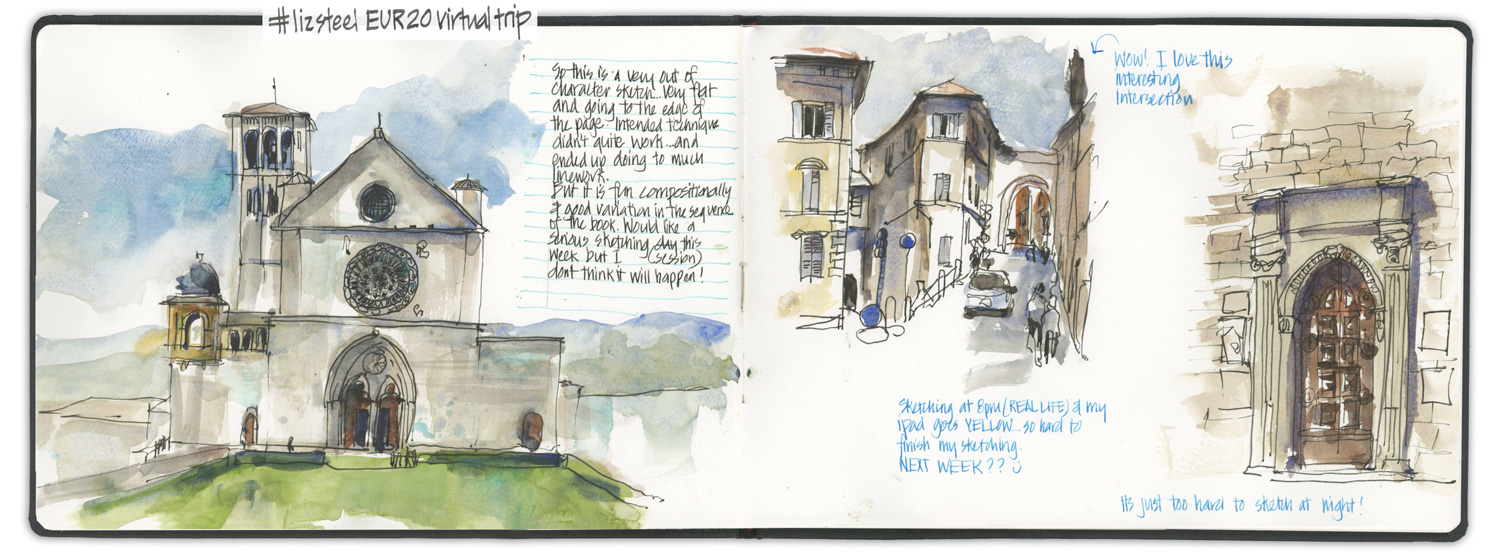 #lizsteel EUR20 virtual trip
So this is a very out of
character sketch... Very flat
and going to the edge of
the page. Intended technique
didn't quite work...and
ended up doing to much
linework.
But it is fun compositionally
& good variation in the sequence
of the book. Would like a
serious sketching day this
week but I (session)
dont think it will happen!
Wow! I love this
interesting
intersection
Sketching at 8pm (REAL LIFE) & my
ipad goes YELLOW... so hard to
finish my sketching.
NEXT WEEK??
Its just too hard to sketch at night!